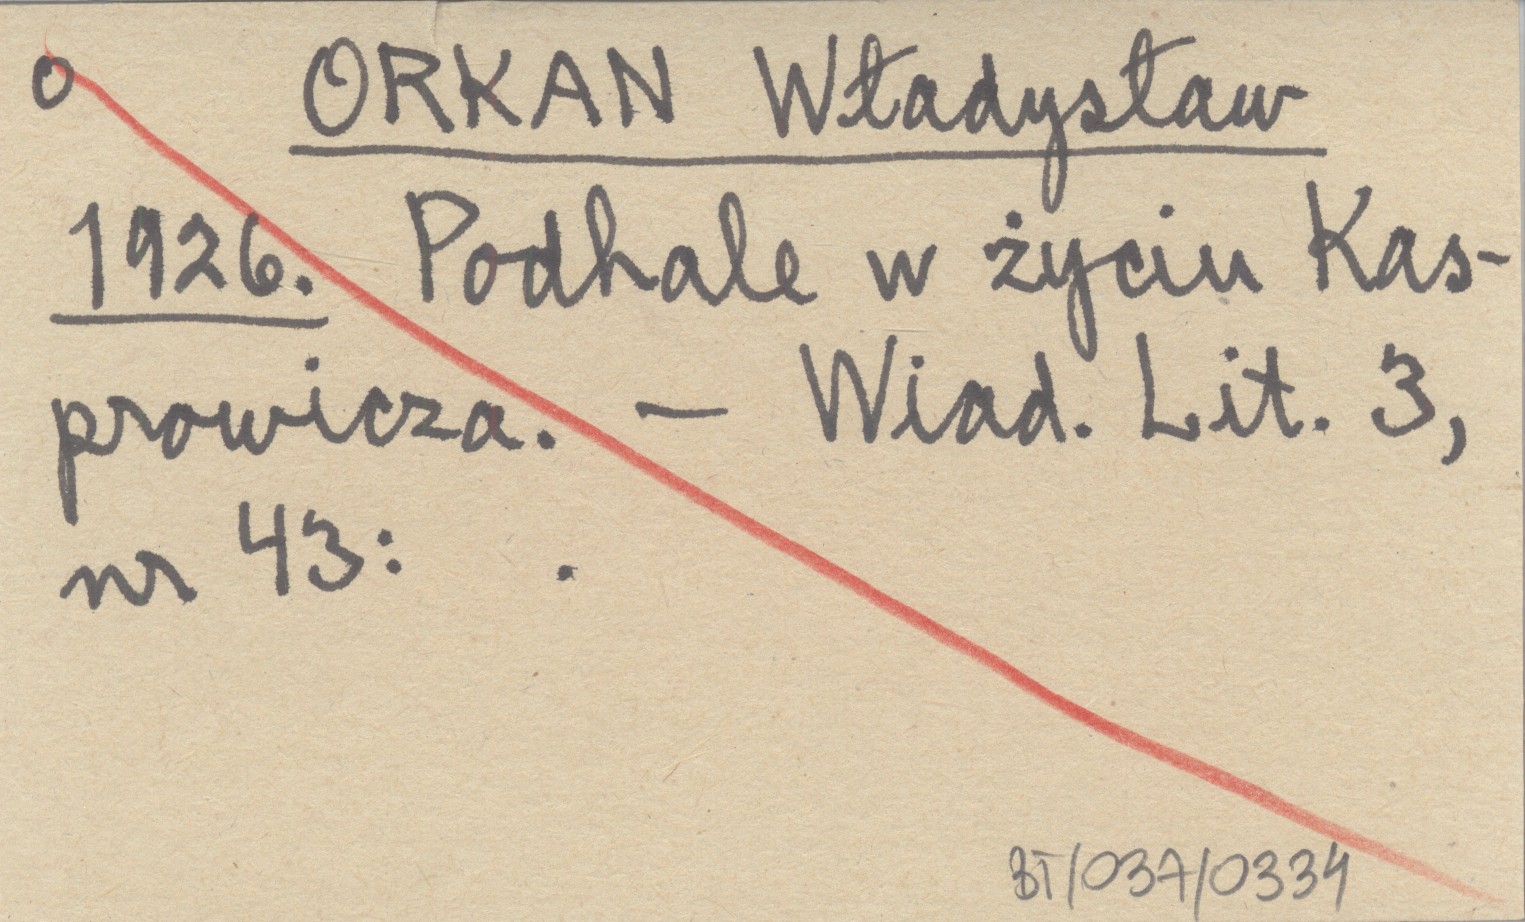 o ORKAN Władysław
1926. Podhale w życiu Kas-
prowicza. — Wiad. Lit. 3,
nr 43: .
BT/037/0334